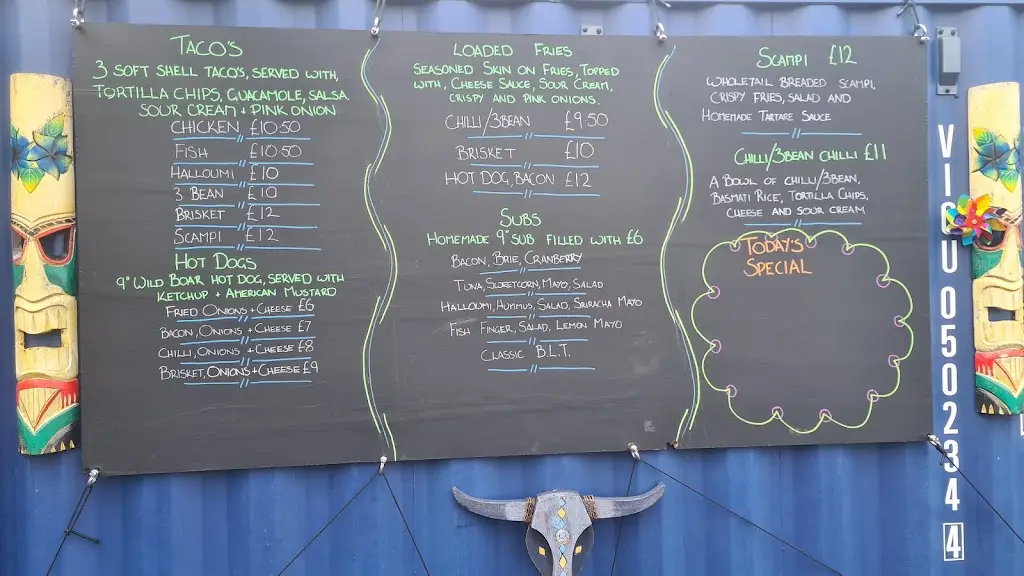 TACO'S
3 SOFT SHELL TACO'S, SERVED WITH,
TORTILLA CHIPS, GUACAMOLE, SALSA
SOUR CREAM + PINK ONION
CHICKEN £10.50
FISH £10.50
HALLOUMI £10
3 BEAN £10
BRISKET £12
SCAMPI £12
HOT DOGS
9" WILD BOAR HOT DOG, SERVED WITH
KETCHUP + AMERICAN MUSTARD
FRIED ONIONS + CHEESE £6
BACON, ONIONS + CHEESE £7
CHILLI, ONIONS + CHEESE £8
BRISKET, ONIONS + CHEESE £9
LOADED FRIES
SEASONED SKIN ON FRIES, TOPPED
WITH, CHEESE SAUCE, SOUR CREAM,
CRISPY AND PINK ONIONS.
CHILLI/3BEAN £9.50
BRISKET £10
HOT DOG, BACON £12
SUBS
HOMEMADE 9" SUB FILLED WITH £6
BACON, BRIE, CRANBERRY
TUNA, SWEETCORN, MAYO, SALAD
HALLOUMI, HUMMUS, SALAD, SRIRACHA MAYO
FISH FINGER, SALAD, LEMON MAYO
CLASSIC B.L.T.
SCAMPI £12
WHOLETAIL BREADED SCAMPI,
CRISPY FRIES, SALAD AND
HOMEMADE TARTARE SAUCE
CHILLI/3BEAN CHILLI £11
A BOWL OF CHILLI/3BEAN,
BASMATI RICE, TORTILLA CHIPS,
CHEESE AND SOUR CREAM
TODAY'S
SPECIAL
VICU 050234 4